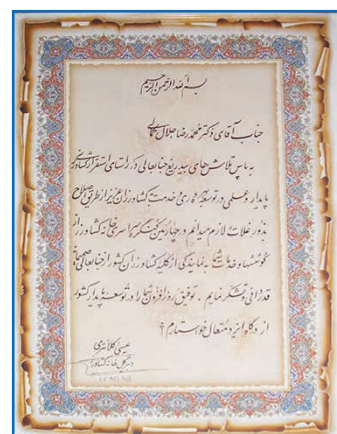 بسم الله الرحمن الرحیم
جناب آقای دکتر محمدرضا جلال کمالی
به پاس تلاش های بیدریغ جنابعالی در راستای استقرار کشاورزی
پایدار و عملی در توسعه خدمت کشاورزان عزیز از طریق اصلاح
بذور غلات لازم میدانم در چهارمین کنگره سراسری خانه کشاورز از
کوششها و خدمات شما به نمایندگی از کلیه کشاورزان کشور از جنابعالی
قدردانی و تشکر نمایم . توفیق روزافزون شما را در توسعه پایدار کشور
از درگاه ایزد متعال خواستارم
عیسی کلانتری
دبیرکل خانه کشاورز